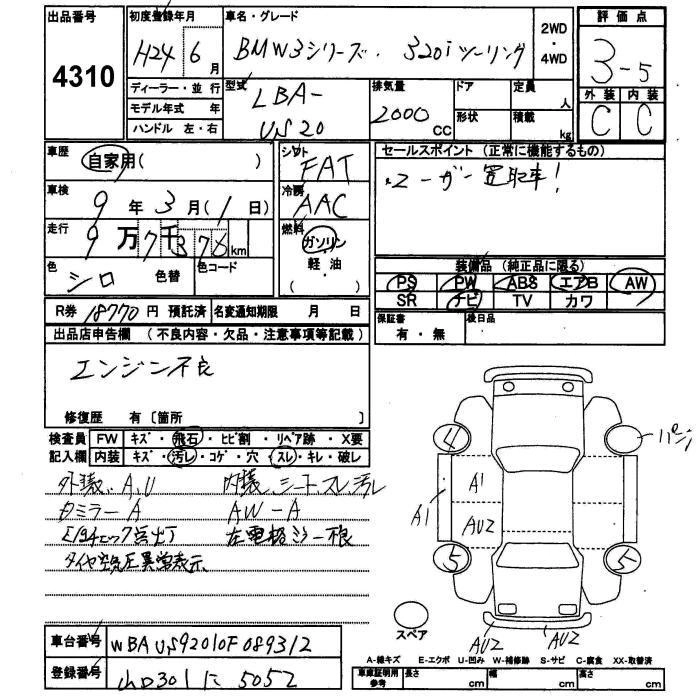 出品番号 4310
初度登録年月 H24 6月
車名・グレード
BMW3シリーズ. 320iツーリング
2WD・4WD
評価点
3-5
外装 内装
C C
ディーラー・並行
モデル年式 年
ハンドル 左・右
型式 LBA-
US20
排気量
2000 CC
ドア
形状
定員 人
積載 kg
車歴
自家用( )
車検
9年3月(1日)
走行
9万7千376km
色 シロ 色替 色コード
シフト
FAT
冷房
AAC
燃料
ガソリン
軽・油
( )
セールスポイント (正常に機能するもの)
ユーザー買取車!
装備品 (純正品に限る)
PS PW ABS エアB AW
SR ナビ TV カワ
R券 18770円 預託済 名変通知期限 月 日
保証書
有・無
後日品
出品店申告欄 (不良内容・欠品・注意事項等記載)
エンジン不良
修復歴 有〔箇所 〕
検査員
記入欄
FW キズ・飛石・ヒビ割・リペア跡・X要
内装 キズ・汚レ・コゲ・穴・スレ・キレ・破レ
外装、A、U 内装、シート、スレ、汚レ
ミラーA AW-A
点灯 左電格ミラー不良
タイヤ空気圧異常表示
車台番号 WBAUS92010F089312
登録番号 301 に 5052
4
パンク
A1
A1
AU2
5
5
スペア
AU2
AU2
A-線キズ E-エクボ U-凹み W-補修跡 S-サビ C-腐食 XX-取替済
車庫証明用
参考
長さ cm 幅 cm 高さ cm